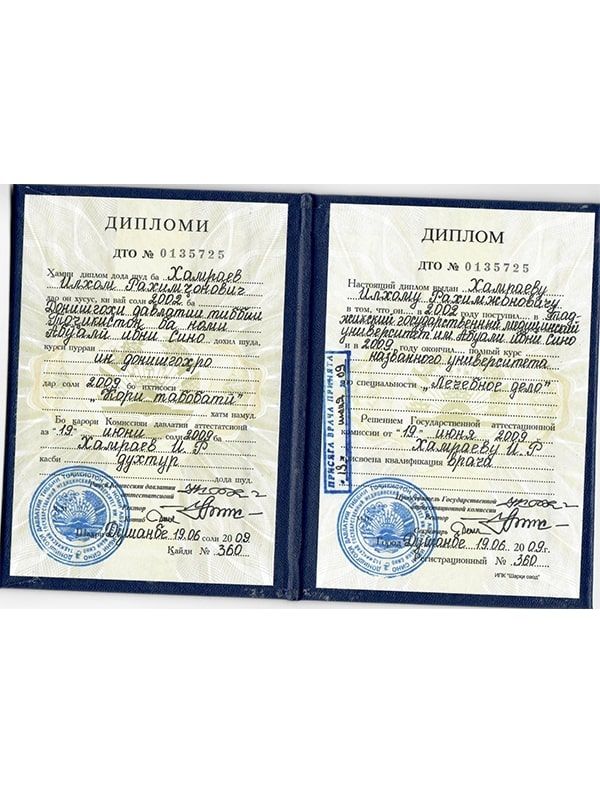 ДИПЛОМИ
ДТО № 0135725
Ҳамин диплом дода шуд ба Хамраев
Илхом Рахимҷонович
дар он хусус, ки вай соли 2002 ба
Донишгохи давлатии тиббии
Тоҷикистон ба номи
Абӯалӣ ибни Сино дохил шуда,
курси пурраи
ин донишгоҳро
дар соли 2009 бо ихтисоси
"Кори табобатӣ"
хатм намуд.
Бо қарори Комиссияи давлатии аттестатсионӣ
аз "19" июни соли 2009 ба
Хамраев И.Р
касби духтур
дода шуд.
Душанбе 19.06 соли 2009
Қайди № 360
ДИПЛОМ
ДТО № 0135725
Настоящий диплом выдан Хамраеву
Илхому Рахимжоновичу
в том, что он в 2002 году поступил в Тад-
жикский государственный медицинский
университет им Абуали ибни Сино
и в 2009 году окончил полный курс
названного университета
по специальности "Лечебное дело"
Решением Государственной аттестационной
комиссии от "19" июня 2009
Хамраеву И.Р
присвоена квалификация врача
ПРИСЯГА ВРАЧА ПРИНЯТА
"19" июня 09
Председатель Государственной
аттестационной комиссии
Ректор
Секретарь
Город Душанбе 19.06. 2009 г.
Регистрационный № 360
ИПК "Шарқи озод"